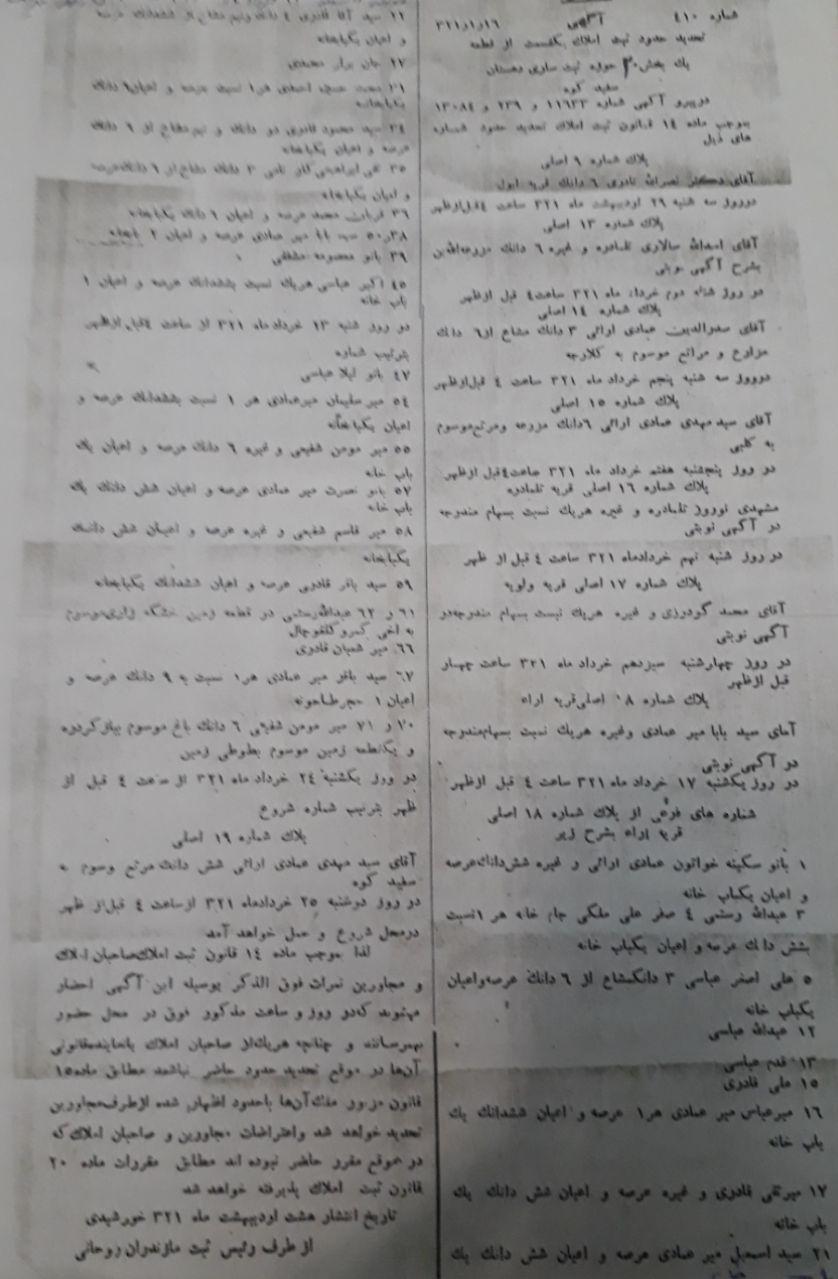 شماره ۴۱۰ آگهی ۳۲۱/۱/۱۶
تحدید حدود ثبت املاک یکقسمت از قطعه
یك بخش ۳ حوزه ثبت ساری دهستان
سفید کوه
درپیرو آگهی شماره ۱۱۶۲۳ و ۲۳۹ و ۱۳۰۸۴
بموجب ماده ۱۴ قانون ثبت املاك تحدید حدود شماره
های ذیل
پلاك شماره ۹ اصلی
آقای دکتر نصرالله قادری ۶ دانك قریه
درروز سه شنبه ۲۹ اردیبهشت ماه ۳۲۱ ساعت ۴قبل‌ازظهر
پلاك شماره ۱۳ اصلی
آقای اسدالله سالاری تلمادره و غیره ۶ دانك مزرعه
بشرح آگهی نوبتی
دو روز شنبه دوم خرداد ماه ۳۲۱ ساعت۴ قبل ازظهر
پلاك شماره ۱۴ اصلی
آقای صدرالدین عمادی ارائی ۳ دانك مشاع از۶ دانك
مزارع و مراتع موسوم به کلارجه
درروز سه شنبه پنجم خرداد ماه ۳۲۱ ساعت ٤ قبل‌ازظهر
پلاك شماره ۱۵ اصلی
آقای سید مهدی عمادی ارائی ۶دانك مزرعه ومرتع‌موسوم
به کلبی
در روز پنجشنبه هفتم خرداد ماه ۳۲۱ ساعت٤قبل ازظهر
پلاك شماره ۱۶ اصلی قریه تلمادره
مشهدی نوروز تلمادره و غیره هریك نسبت بسهام مندرجه
در آگهی نوبتی
در روز شنبه نهم خردادماه ۳۲۱ ساعت ٤ قبل از ظهر
پلاك شماره ۱۷ اصلی قریه ولویه
آقای محمد گودرزی و غیره هریك نسبت بسهام مندرجه‌در
آگهی نوبتی
در روز چهارشنبه سیزدهم خرداد ماه ۳۲۱ ساعت چهار
قبل ازظهر
پلاك شماره ۱۸ اصلی‌قریه اراء
آقای سید بابا میر عمادی وغیره هریك نسبت بسهام‌مندرجه
در آگهی نوبتی
در روز یکشنبه ۱۷ خرداد ماه ۳۲۱ ساعت ٤ قبل ازظهر
شماره های فرعی از پلاك شماره ۱۸ اصلی
قریه اراء بشرح زیر
۱ بانو سکینه خواتون عمادی ارائی و غیره شش‌دانك‌عرصه
و اعیان یکباب خانه
۳ عبدالله رستمی ٤ صفر علی ملکی جام خانه هر ۱نسبت
بشش دانك عرصه و اعیان یکباب خانه
۵ علی اصغر عباسی ۳ دانکمشاع از ۶ دانك عرصه‌واعیان
یکباب خانه
۱۲ عبدالله عباسی
۱۳ عباسی
۱۵ علی قادری
۱۶ میرعباس میر عمادی هر۱ عرصه و اعیان ششدانك یك
باب خانه
۱۷ میرتقی قادری و غیره عرصه و اعیان شش دانك یك
باب خانه
۲۱ سید اسمعیل میر عمادی عرصه و اعیان شش دانك یك
۲۲ سید آقا قادری ٤ دانك ونیم مشاع از ششدانك عرصه
و اعیان یکبابخانه
۲۳ جان برار محمدی
یکبابخانه
۳۴ سید محمود قادری دو دانك و نیم مشاع از ۶ دانك
عرصه و اعیان یکبابخانه
۳۵ ۳ دانك مشاع از ۶ دانك‌عرصه
و اعیان یکبابخانه
۳۶ قربان محمد عرصه و اعیان ۶ دانك یکبابخانه
۳۸ و ۵۰ سید بابا میر عمادی عرصه و اعیان ۲ بابخانه
۳۹ بانو معصومه
۴۵ اکبر عباسی هریك نسبت بششدانك عرصه و اعیان ۱
باب خانه
در روز شنبه ۲۳ خرداد ماه ۳۲۱ از ساعت ٤قبل ازظهر
بترتیب شماره
۴۷ بانو لیلا عباسی
۵۴ میر سلیمان میرعمادی هر ۱ نسبت بششدانك عرصه و
اعیان یکبابخانه
۵۵ میر مومن شفیعی و غیره ۶ دانك عرصه و اعیان یك
باب خانه
۵۷ بانو نصرت میر عمادی عرصه و اعیان شش دانك یك
باب خانه
۵۸ میر قاسم شفیعی و غیره عرصه و اعیان شش دانك
یکبابخانه
۵۹ سید باقر قادری عرصه و اعیان ششدانك یکبابخانه
۶۱ و ۶۲ عبدالله‌رستمی دو قطعه زمین خشکه زاری‌موسوم
۶۶ میر شعبان قادری
۶۷ سید باقر میر عمادی هر۱ نسبت به ۹ دانك عرصه و
اعیان ۱ حجرطاحونه
۷۰ و ۷۱ میر مومن شفیعی ۶ دانك باغ موسوم
و یکقطعه زمین موسوم
در روز یکشنبه ۲۴ خرداد ماه ۳۲۱ از ساعت ٤ قبل از
ظهر بترتیب شماره شروع
پلاك شماره ۱۹ اصلی
آقای سید مهدی عمادی ارائی شش دانك مرتع موسوم به
سفید کوه
در روز دوشنبه ۲۵ خردادماه ۳۲۱ ازساعت ٤ قبل‌از ظهر
درمحل شروع و عمل خواهد آمد
لذا بموجب ماده ۱۴ قانون ثبت املاك‌صاحبان املاك
و مجاورین نمرات فوق الذکر بوسیله این آگهی احضار
میشوند که‌در روز و ساعت مذکور فوق در محل حضور
بهمرسانند و چنانچه هریك‌از صاحبان املاك یانماینده‌قانونی
آنها در موقع تحدید حدود حاضر نباشند مطابق ماده۱۵
قانون مزبور ملك‌آنها باحدود اظهار شده ازطرف‌مجاورین
تحدید خواهد شد واعتراضات مجاورین و صاحبان املاك‌که
در موقع مقرر حاضر نبوده اند مطابق مقررات ماده ۲۰
قانون ثبت املاك پذیرفته خواهد شد
تاریخ انتشار هشت اردیبهشت ماه ۳۲۱ خورشیدی
از طرف رئیس ثبت مازندران روحانی